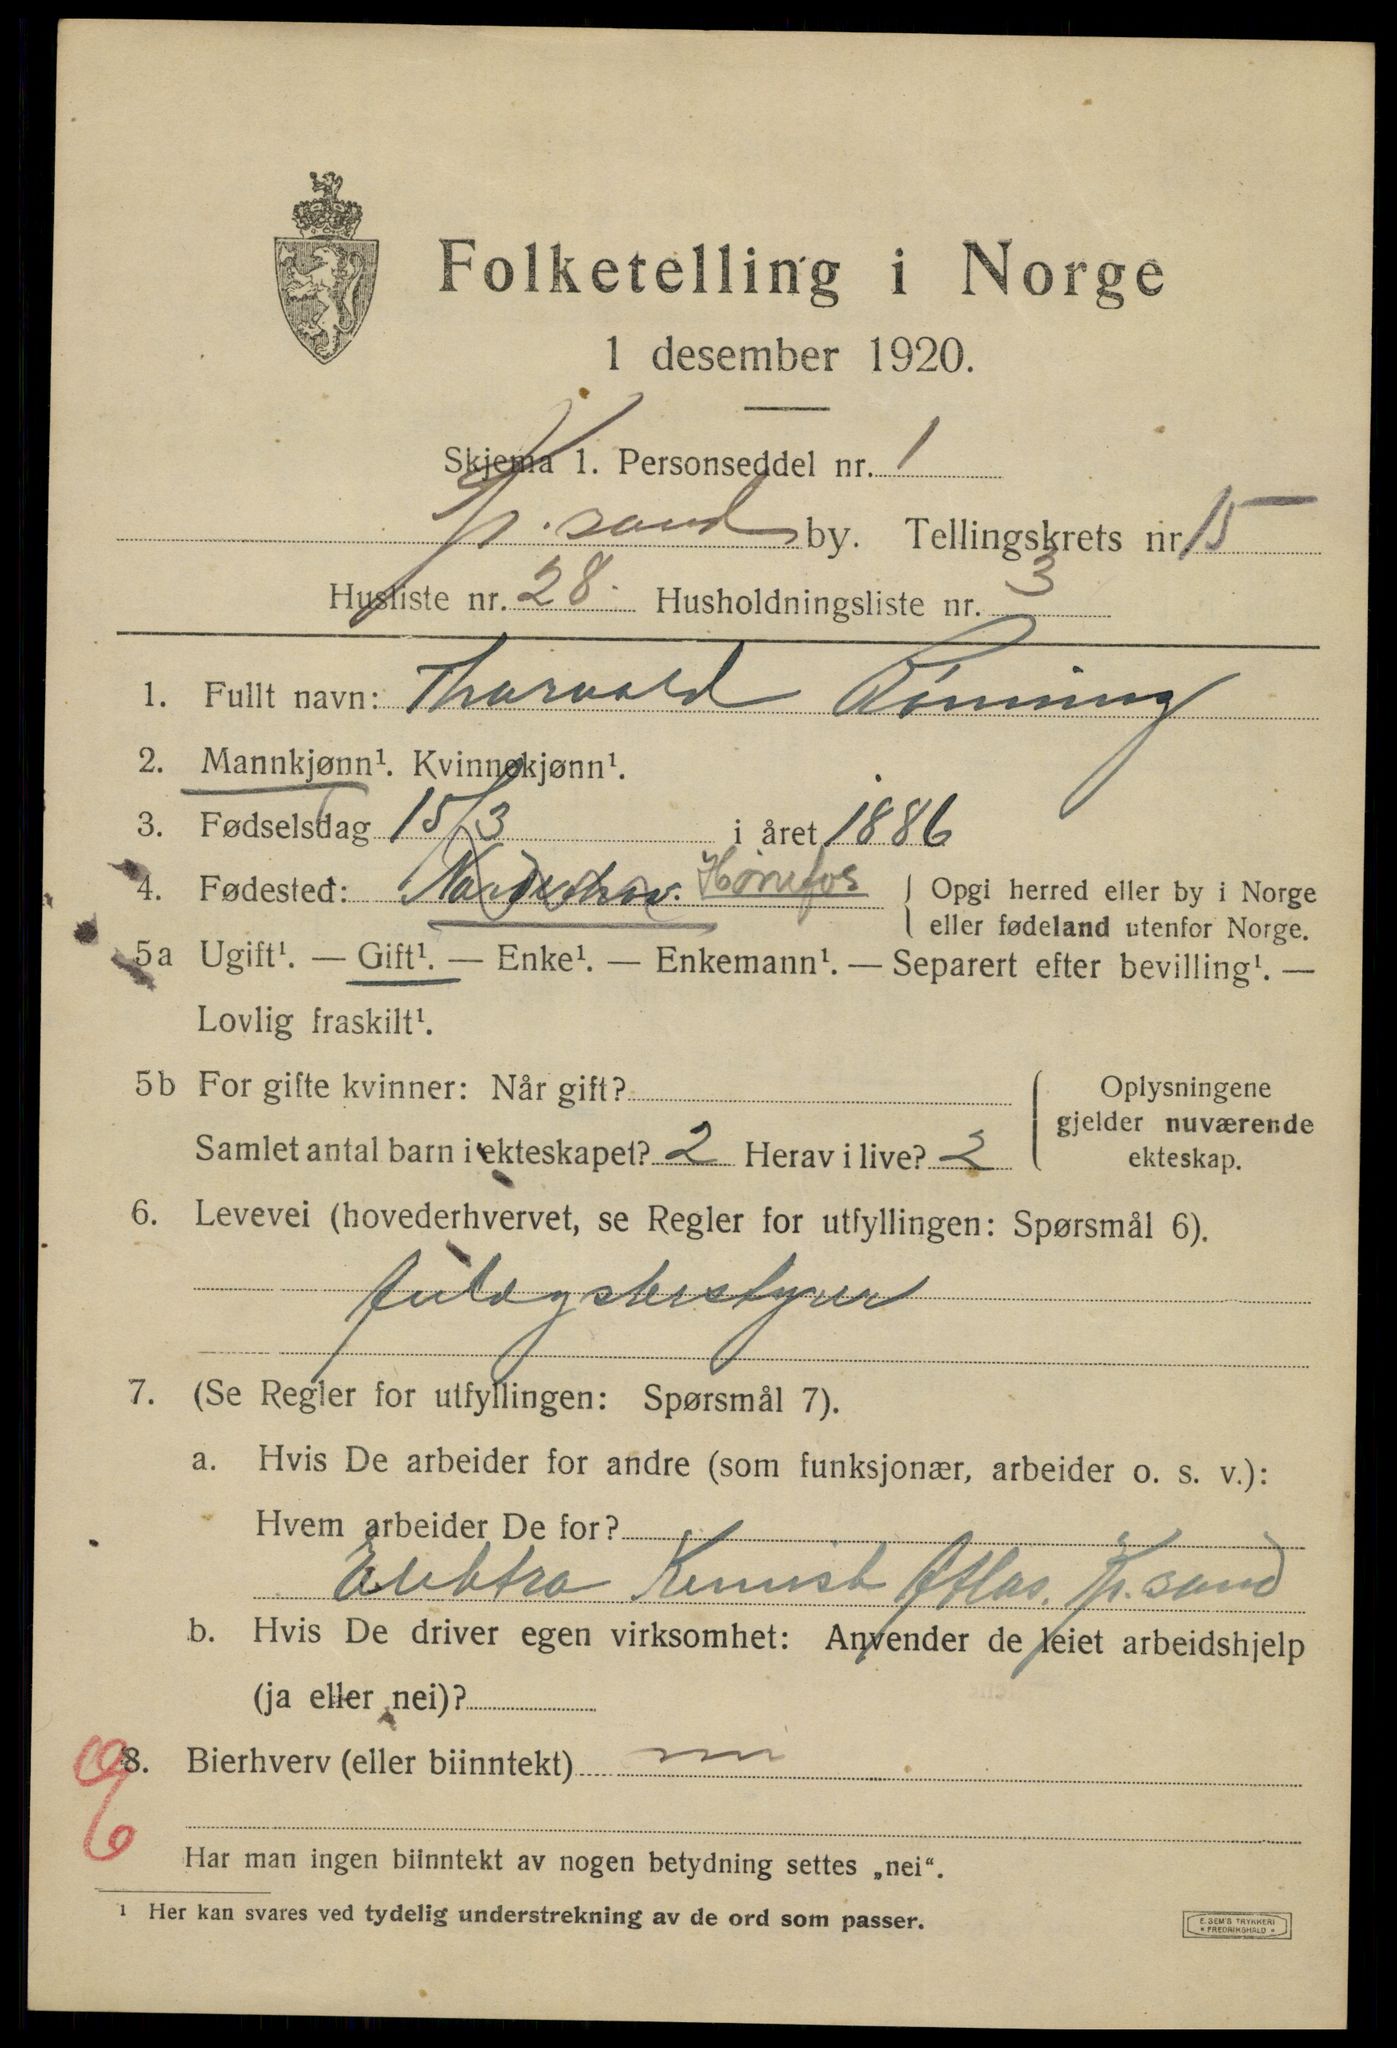 Folketelling i Norge
1 desember 1920.
Skjema 1. Personseddel nr. 1
Kr.sand by. Tellingskrets nr 15
Husliste nr. 28. Husholdningsliste nr. 3
1. Fullt navn: Thorvald Rönning
2. Mannkjønn¹. Kvinnekjønn¹.
3. Fødselsdag 15/3 i året 1886
4. Fødested: Norderhov. Hønefos { Opgi herred eller by i Norge
eller fødeland utenfor Norge.
5a Ugift¹. — Gift¹. — Enke¹. — Enkemann¹. — Separert efter bevilling¹. —
Lovlig fraskilt¹.
5b For gifte kvinner: Når gift? Oplysningene
gjelder nuværende
Samlet antal barn i ekteskapet? 2 Herav i live? 2 ekteskap.
6. Levevei (hovederhvervet, se Regler for utfyllingen: Spørsmål 6).
7. (Se Regler for utfyllingen: Spørsmål 7).
a. Hvis De arbeider for andre (som funksjonær, arbeider o. s. v.):
Hvem arbeider De for?
Elektro Kemisk Atlas. Kr.sand
b. Hvis De driver egen virksomhet: Anvender de leiet arbeidshjelp
(ja eller nei)?
8. Bierhverv (eller biinntekt) nei
Har man ingen biinntekt av nogen betydning settes „nei".
¹ Her kan svares ved tydelig understrekning av de ord som passer.
E. SEM'S TRYKKERI
* FREDRIKSHALD *